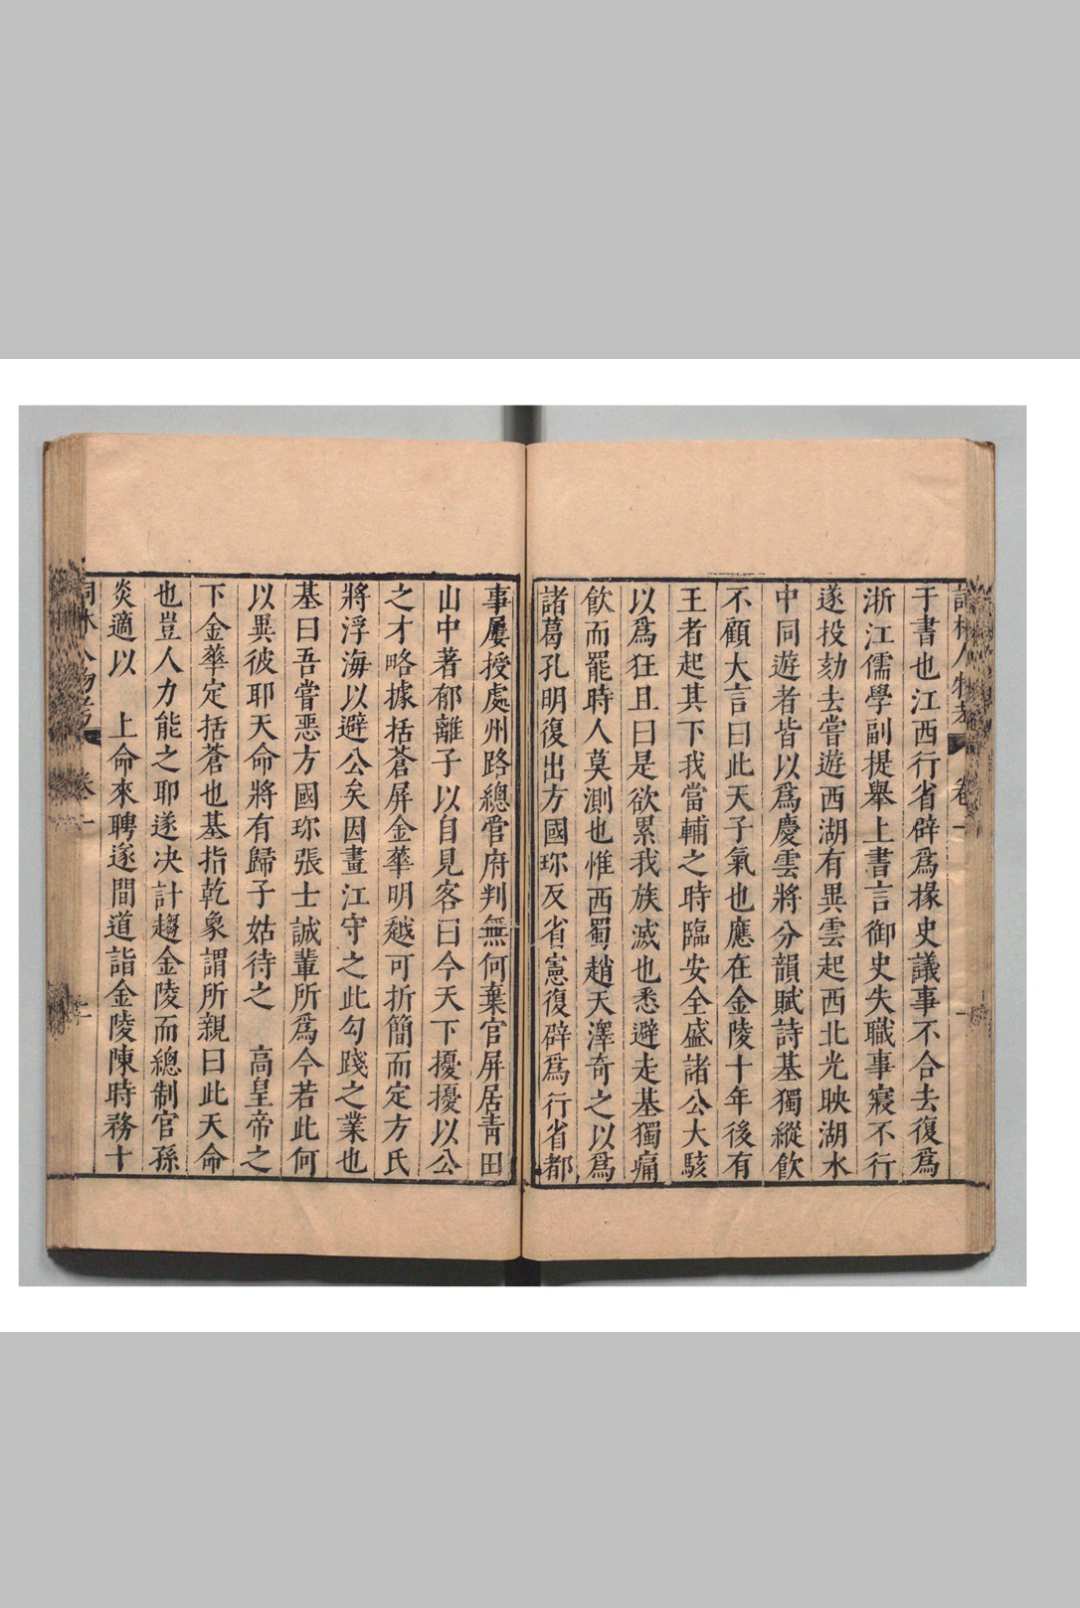 詞林人物考 卷一
于書也江西行省辟爲掾史議事不合去復爲
浙江儒學副提舉上書言御史失職事寢不行
遂投劾去嘗遊西湖有異雲起西北光映湖水
中同遊者皆以爲慶雲將分韻賦詩基獨縱飲
不顧大言曰此天子氣也應在金陵十年後有
王者起其下我當輔之時臨安全盛諸公大駭
以爲狂且曰是欲累我族滅也悉避走基獨痛
飲而罷時人莫測也惟西蜀趙天澤奇之以爲
諸葛孔明復出方國珎反省憲復辟爲行省都
事屢授處州路總管府判無何棄官屏居靑田
山中著郁離子以自見客曰今天下擾擾以公
之才略據括蒼屏金華明越可折簡而定方氏
將浮海以避公矣因畫江守之此勾踐之業也
基曰吾嘗惡方國珎張士誠輩所爲今若此何
以異彼耶天命將有歸子姑待之 高皇帝之
下金華定括蒼也基指乾象謂所親曰此天命
也豈人力能之耶遂决計趨金陵而總制官孫
炎適以 上命來聘遂間道詣金陵陳時務十
詞林人物考 卷一 二